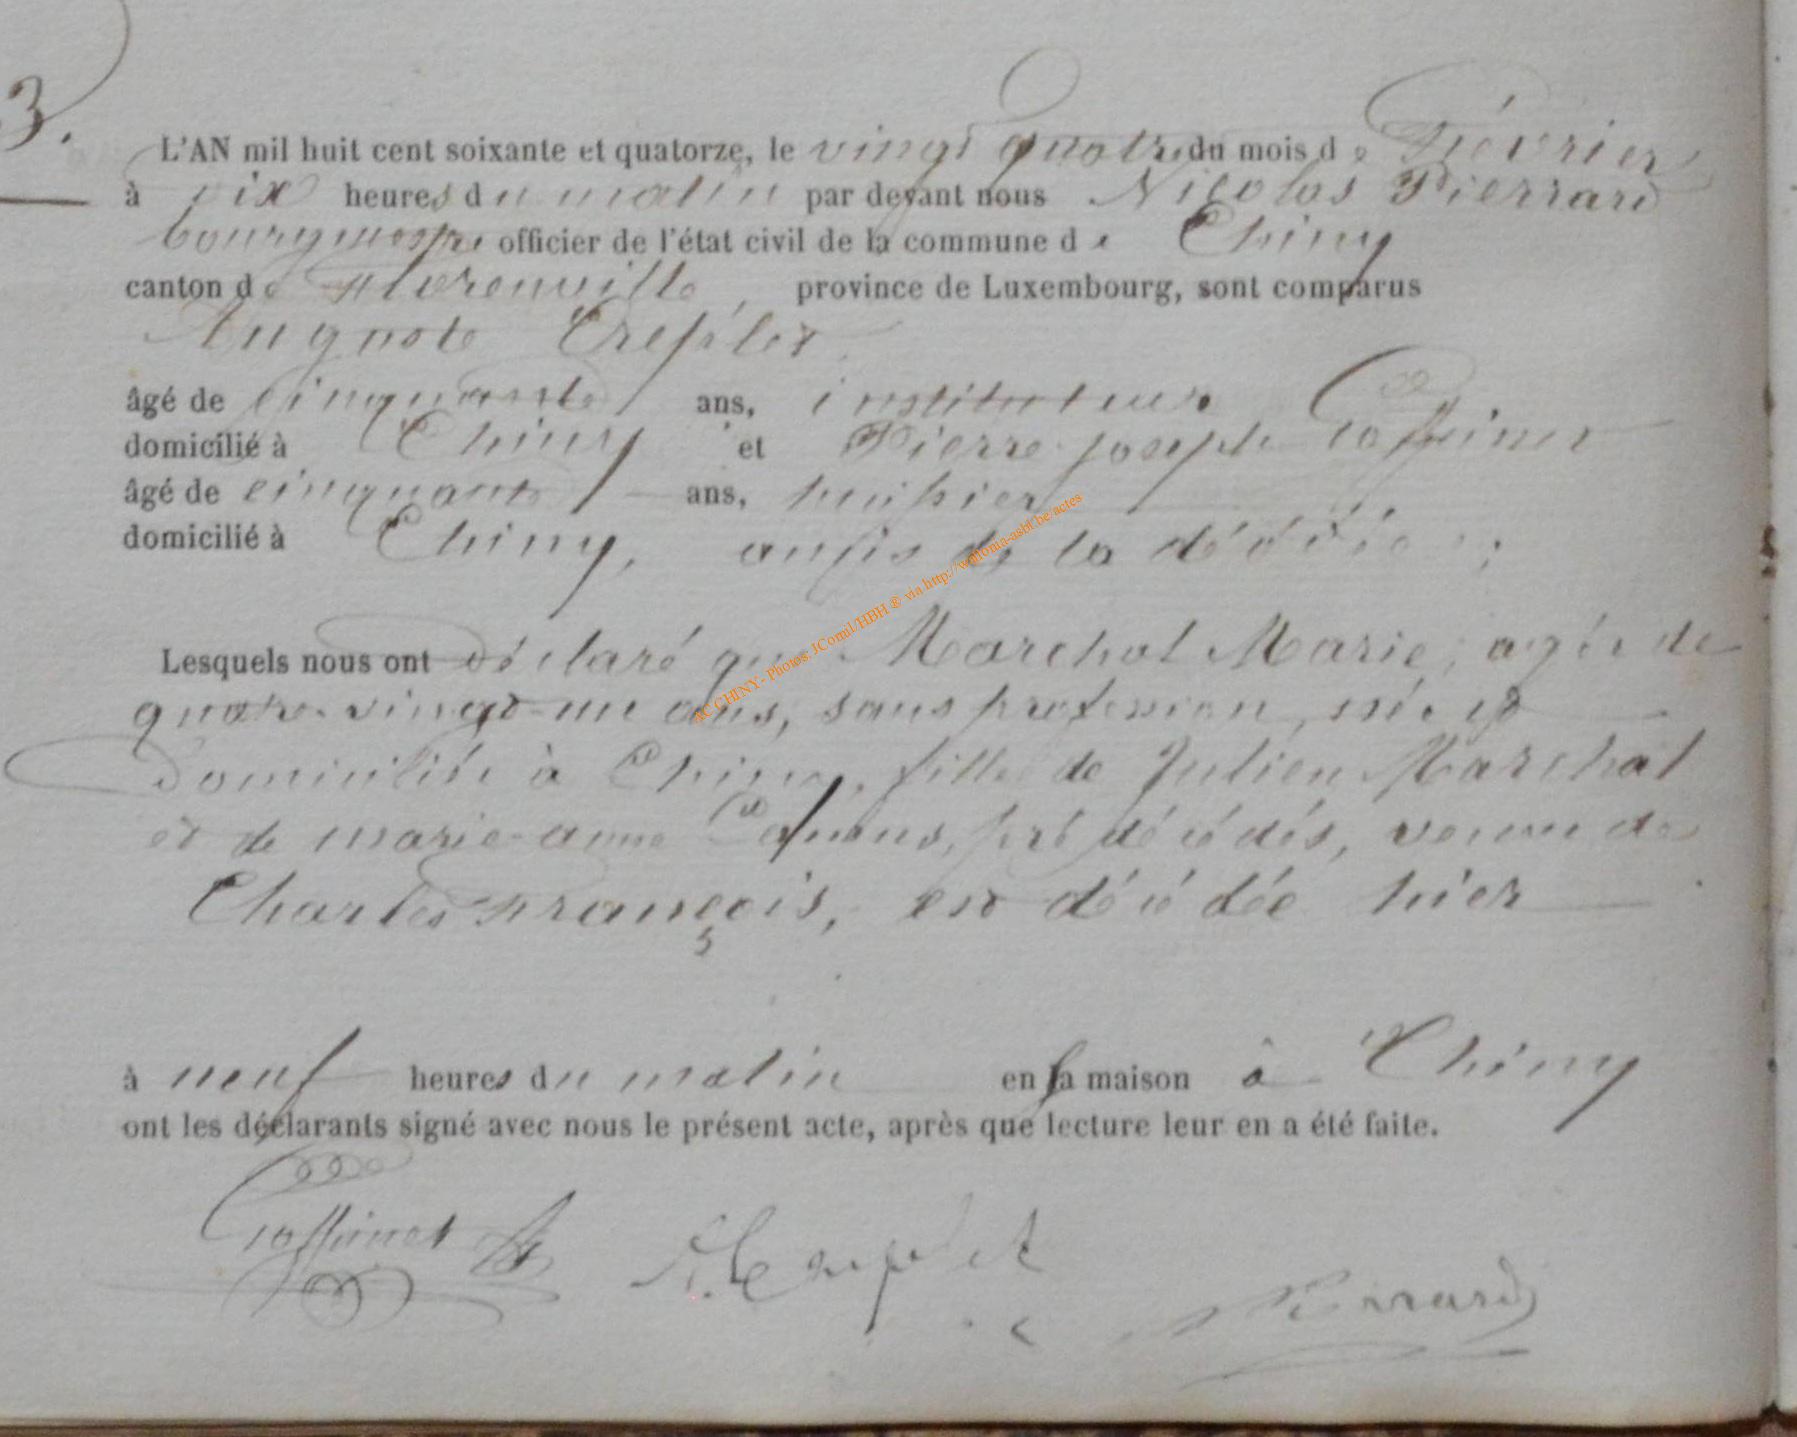 3.
L'AN mil huit cent soixante et quatorze, le vingt quatre du mois de Février
à dix heures du matin par devant nous Nicolas Pierrard
bourgmestre officier de l'état civil de la commune de Chiny
canton de Florenville, province de Luxembourg, sont comparus
Auguste
âgé de cinquante ans, instituteur
domicilié à Chiny et Pierre-Joseph Goffinet
âgé de cinquante ans, huissier
domicilié à Chiny, amis de la décédée;
Lesquels nous ont déclaré que Marchot Marie, agée de
quatre-vingt-un ans, sans profession, née et
domiciliée à Chiny, fille de Julien Marchal
et de marie-anne prédécédés, veuve de
Charles François, est décédée hier
à neuf heures du matin en sa maison à Chiny
ont les déclarants signé avec nous le présent acte, après que lecture leur en a été faite.
Goffinet
Pierrard
AC CHINY- Photos JComil/HBH ® via http://wallonia-asbl.be/actes